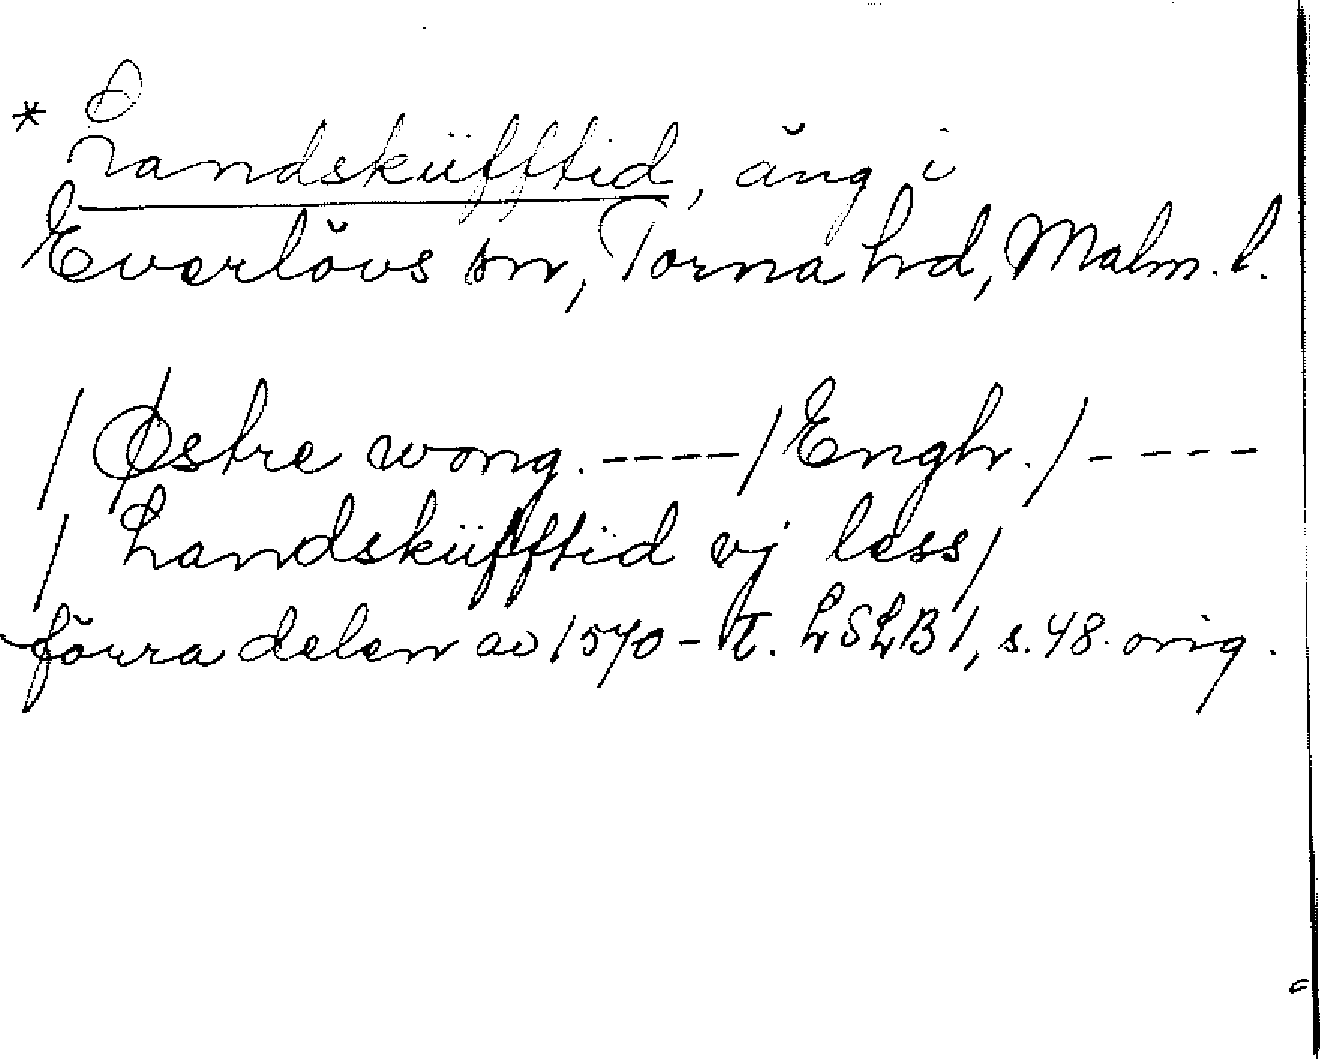 * Landsküfftid, äng i
Everlövs sn, Torna hd, Malm. l.
/ Østre wong. ---- / Enghr. / ----
/ Landsküfftid vj less /
förra delen av 1570-t. LSLB 1, s. 48. orig.